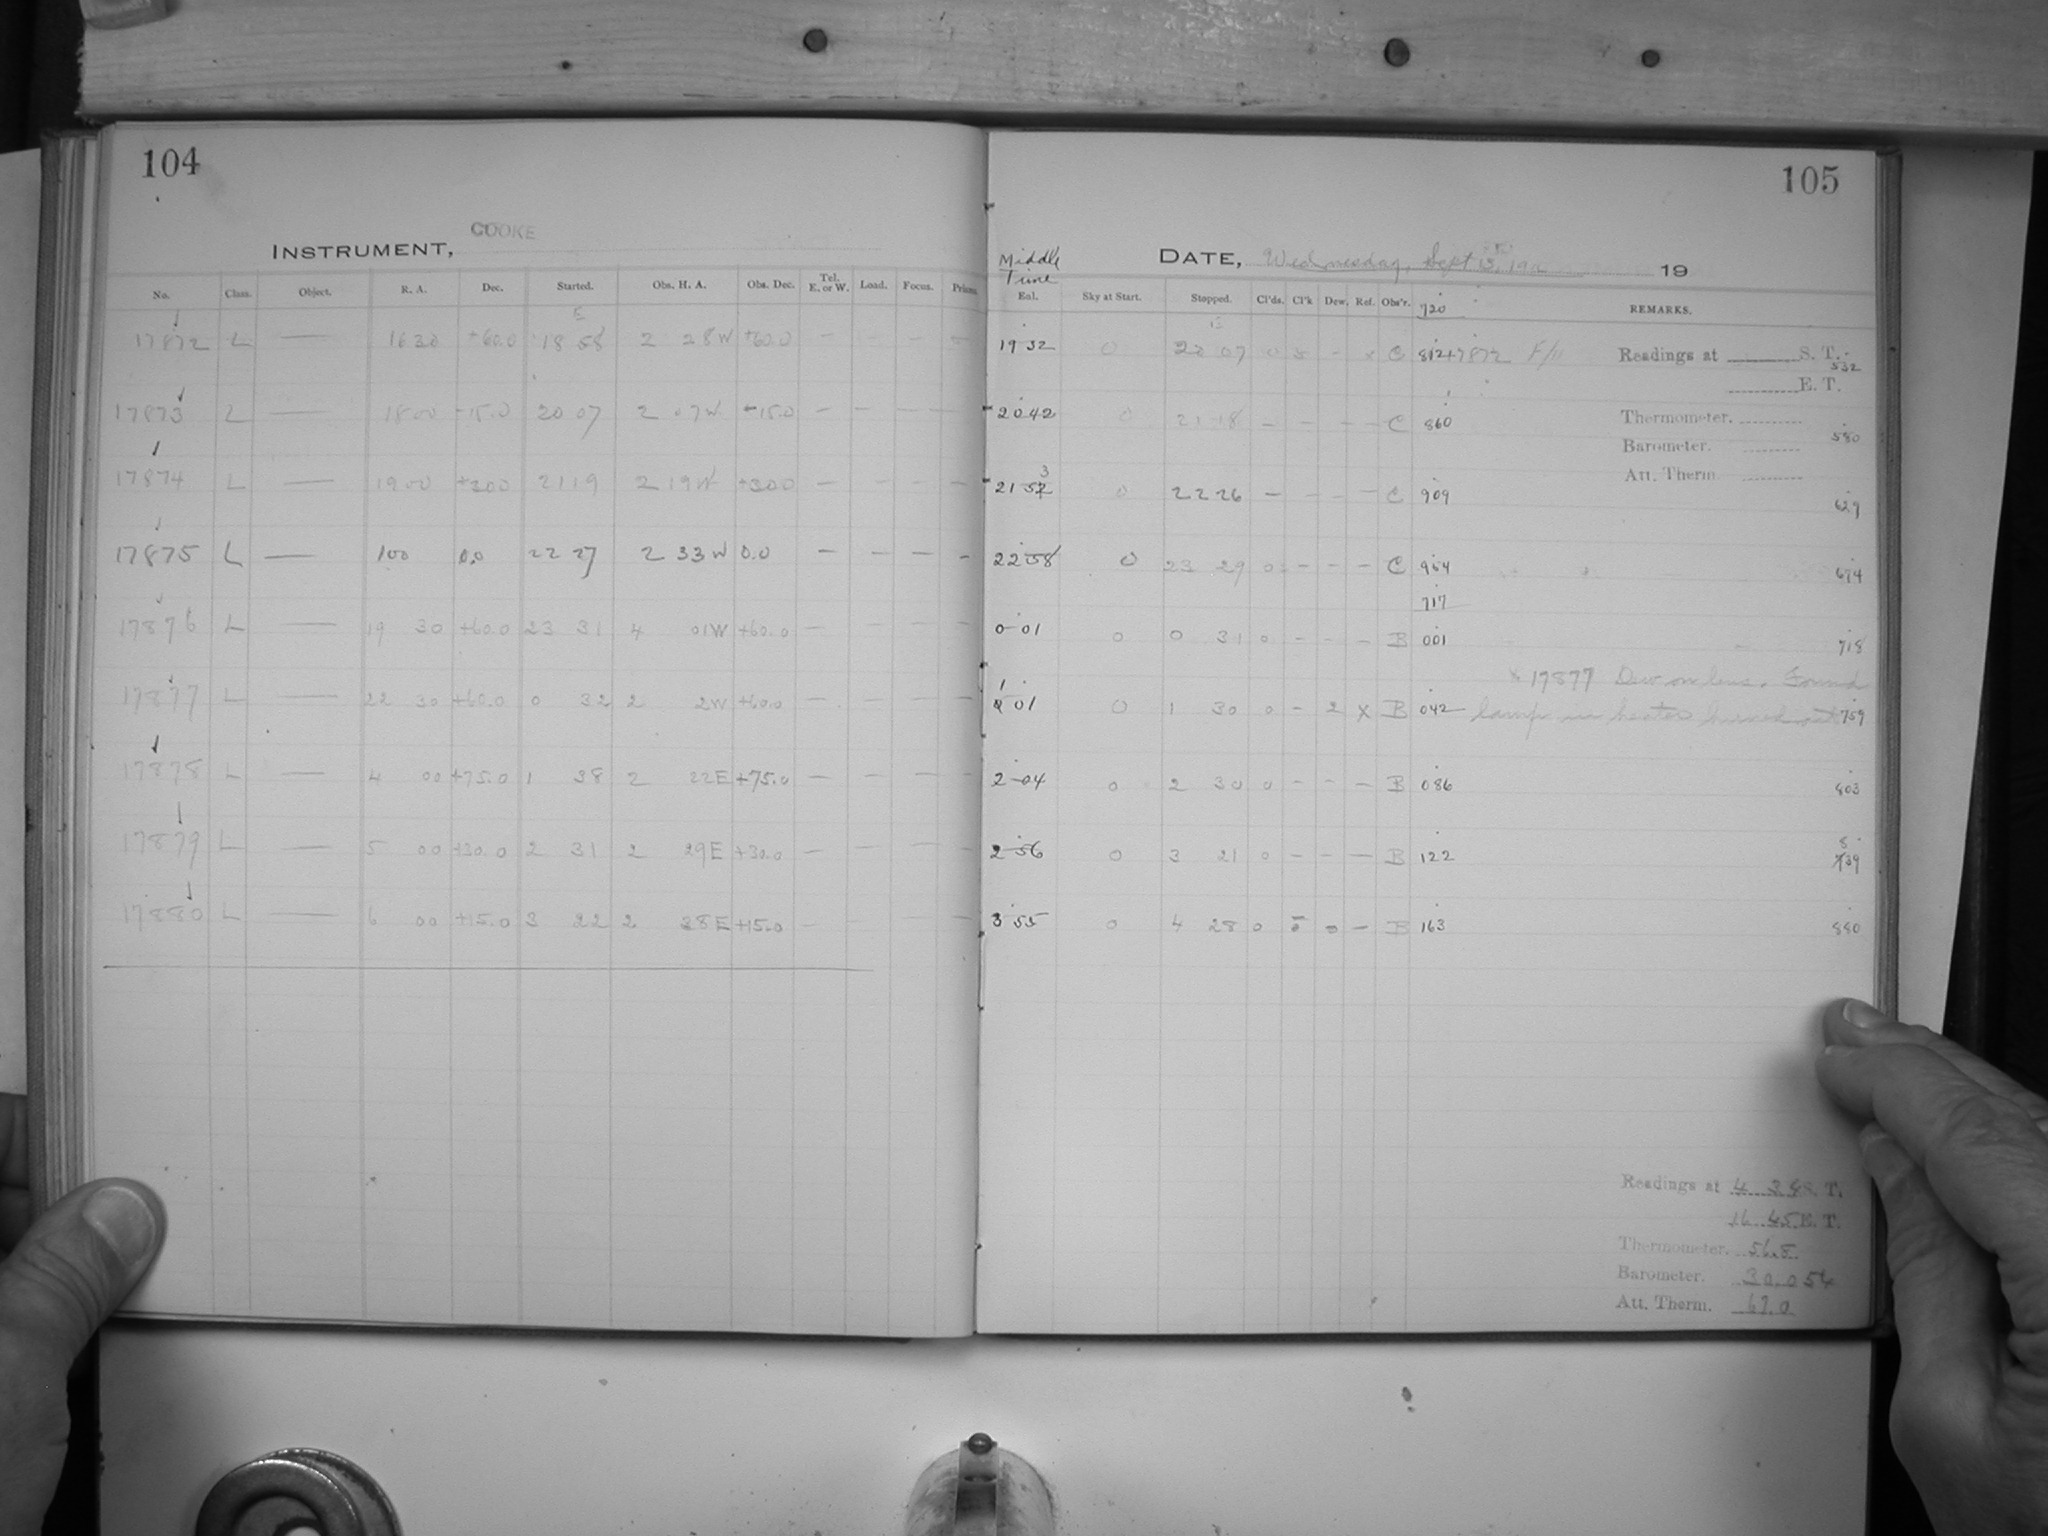 104
COOKE
INSTRUMENT,
No. Class. Object. R. A. Dec. Started. Obs. H. A. Obs. Dec. Tel. E. or W. Load. Focus. Prism.
17872 L — 16 30 +60.0 18 58 2 28W +60.0 — — — —
17873 L — 18 00 -15.0 20 07 2 07W -15.0 — — — —
17874 L — 19 00 +30.0 21 19 2 19W +30.0 — — — —
17875 L — 100 0.0 22 27 2 33W 0.0 — — — —
17876 L — 19 30 +60.0 23 31 4 01W +60.0 — — — —
17877 L — 22 30 +60.0 0 32 2 2W +60.0 — — — —
17878 L — 4 00 +75.0 1 38 2 22E +75.0 — — — —
17879 L — 5 00 +30.0 2 31 2 29E +30.0 — — — —
17880 L — 6 00 +15.0 3 22 2 38E +15.0 — — — —
105
Middle Time
DATE, Wednesday, Sept 19
Eal. Sky at Start. Stopped. Cl'ds. Cl'k Dew. Ref. Obs'r. 720 REMARKS.
19 32 0 20 07 C 812 17872 F/11 Readings at S. T. 532
E. T.
20 42 0 21 18 — — — — C 860 Thermometer. 580
Barometer.
3
21 52 0 22 26 — — — — C 909 Att. Therm. 629
22 58 0 23 29 0 — — — C 954 674
717
0 01 0 0 31 0 — — — B 001 718
x 17877 Dew on lens. Found
1 01 0 1 30 0 — 2 x B 042 lamp in heater burned out 759
2 04 0 2 30 0 — — — B 086 803
8
2 56 0 3 21 0 — — — B 122 739
3 55 0 4 28 0 0 0 — B 163 880
Readings at 4 34 S. T.
16 45 E. T.
Thermometer. 56.8
Barometer. 30.054
Att. Therm. 67.0